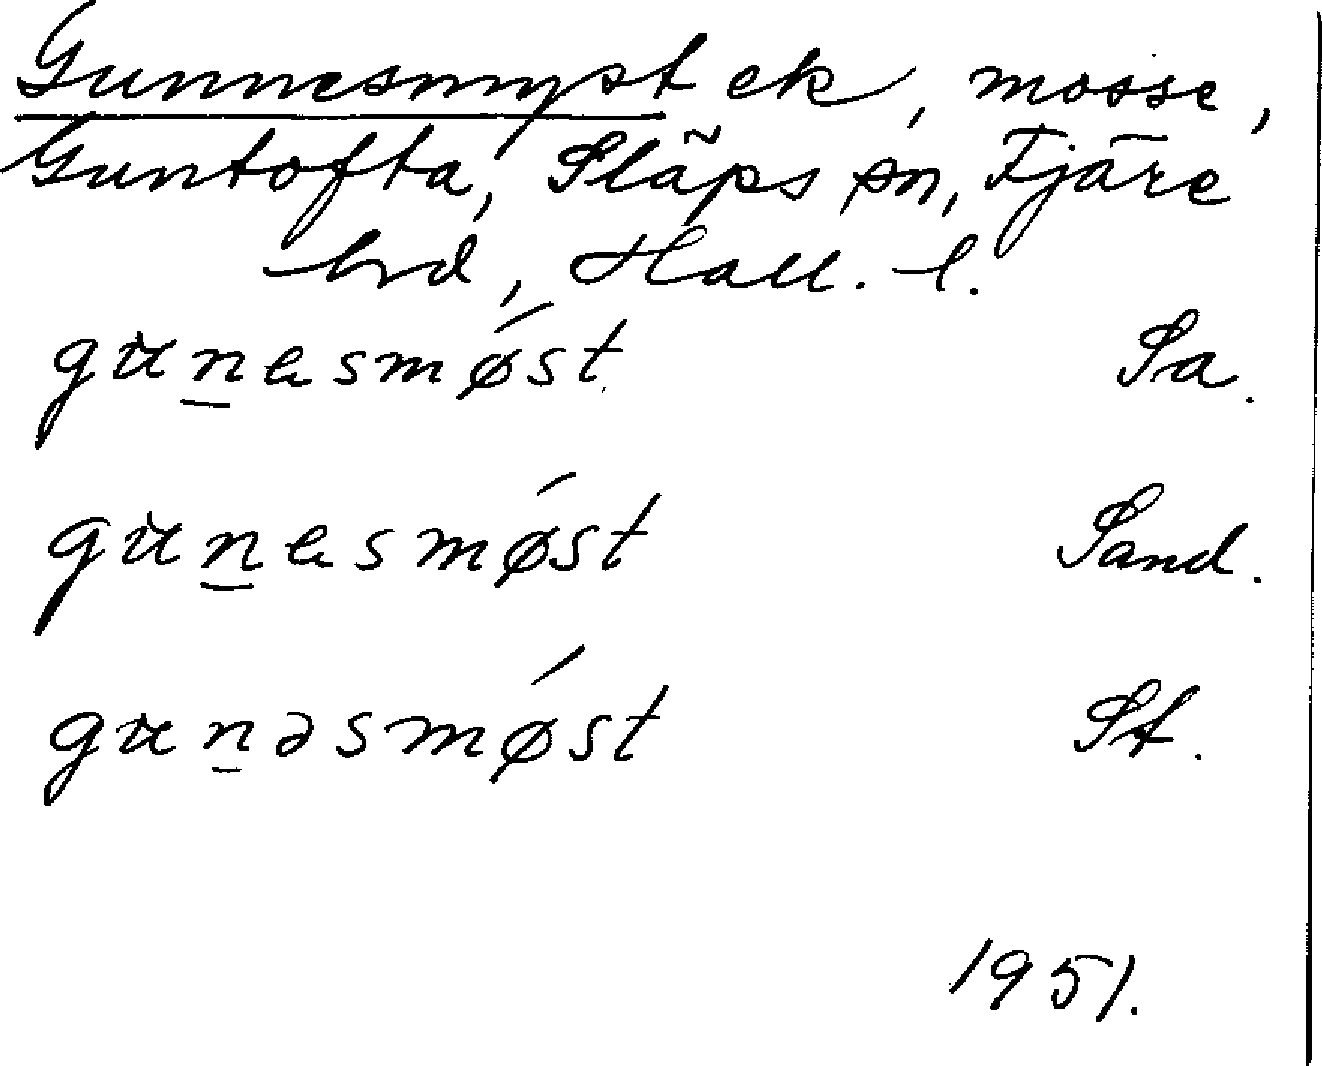 Gunnesmyst ek, mosse,
Guntofta, Släps sn, Fjäre
hrd, Hall. l.
gunesmøst Sa.
gunesmøst Sand.
gunəsmøst St.
1951.